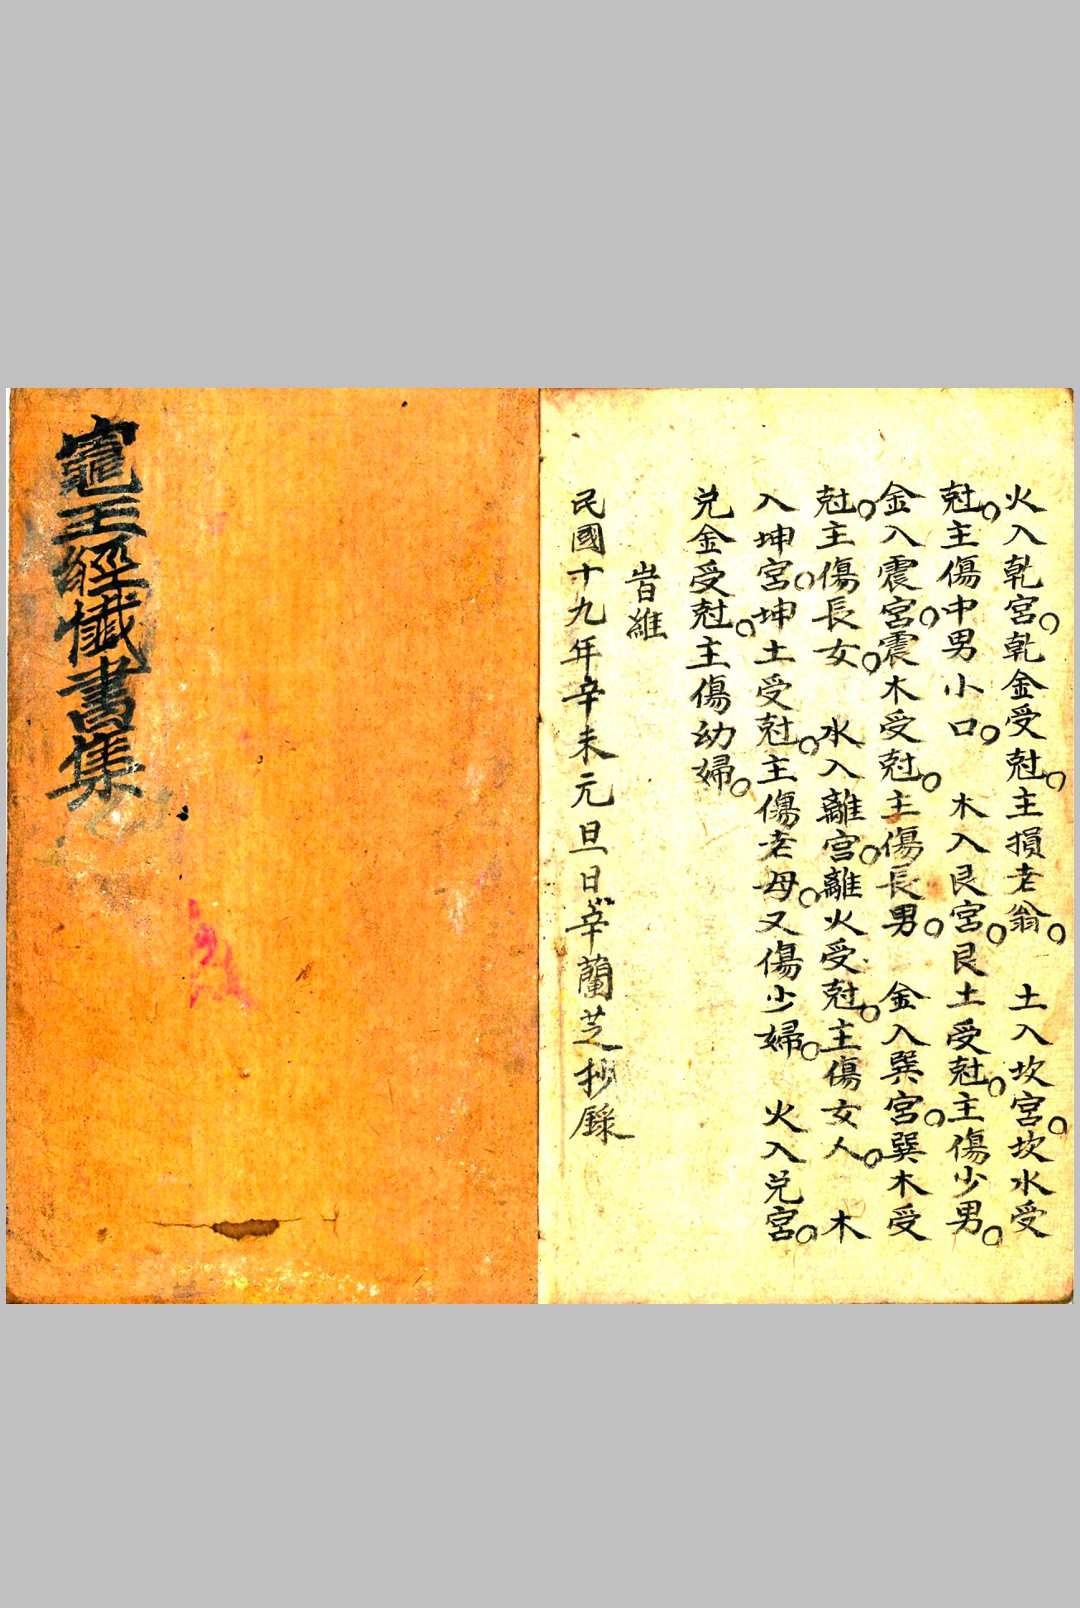 火入乾宮乾金受尅主損老翁　土入坎宮坎水受
尅主傷中男小口　木入艮宮艮土受尅主傷少男
金入震宮震木受尅主傷長男　金入巽宮巽木受
尅主傷長女　水入離宮離火受尅主傷女人　木
入坤宮坤土受尅主傷老母又傷少婦　火入兌宮
兌金受尅主傷幼婦
旹維
民國十九年辛未元旦日辛蘭芝抄錄
竈王經懺書集